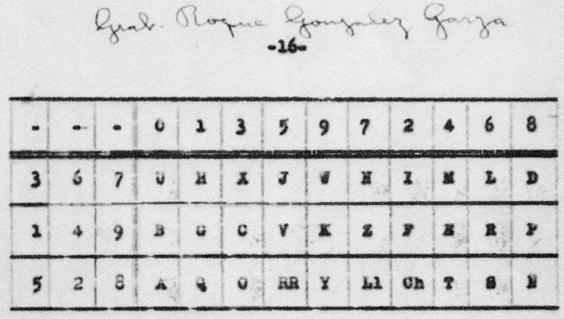 Gral. Roque Gonzalez Garza
-16-
- - - 0 1 3 5 9 7 2 4 6 8
3 6 7 U H X J W N I M L D
1 4 9 B G C V K Z F E R P
5 2 8 A Q O RR Y Ll Ch T S N